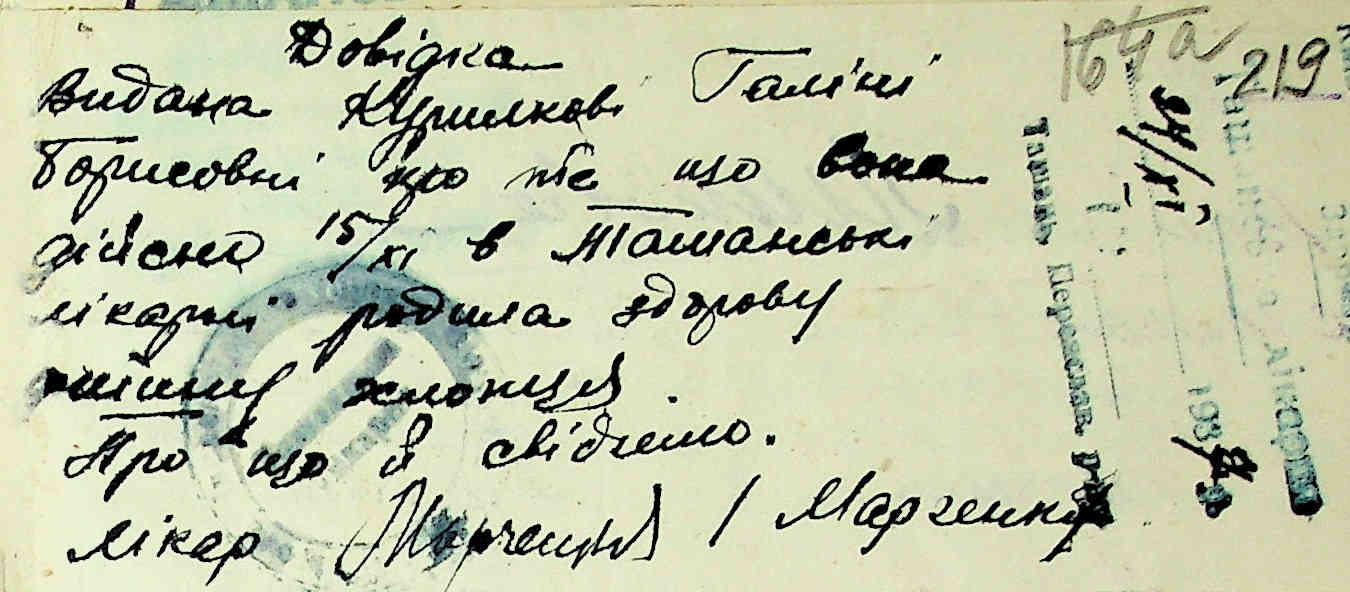 Довідка
Видана Курилкові Галіні
Борисовні про те що вона
дійсно 15/XI в Ташанські
лікарні родила здорову
дитину хлопця.
Про що й свідчемо.
Лікар / Марченко
219
24/XI
Ташань Переяслав. р-
193
лікарня